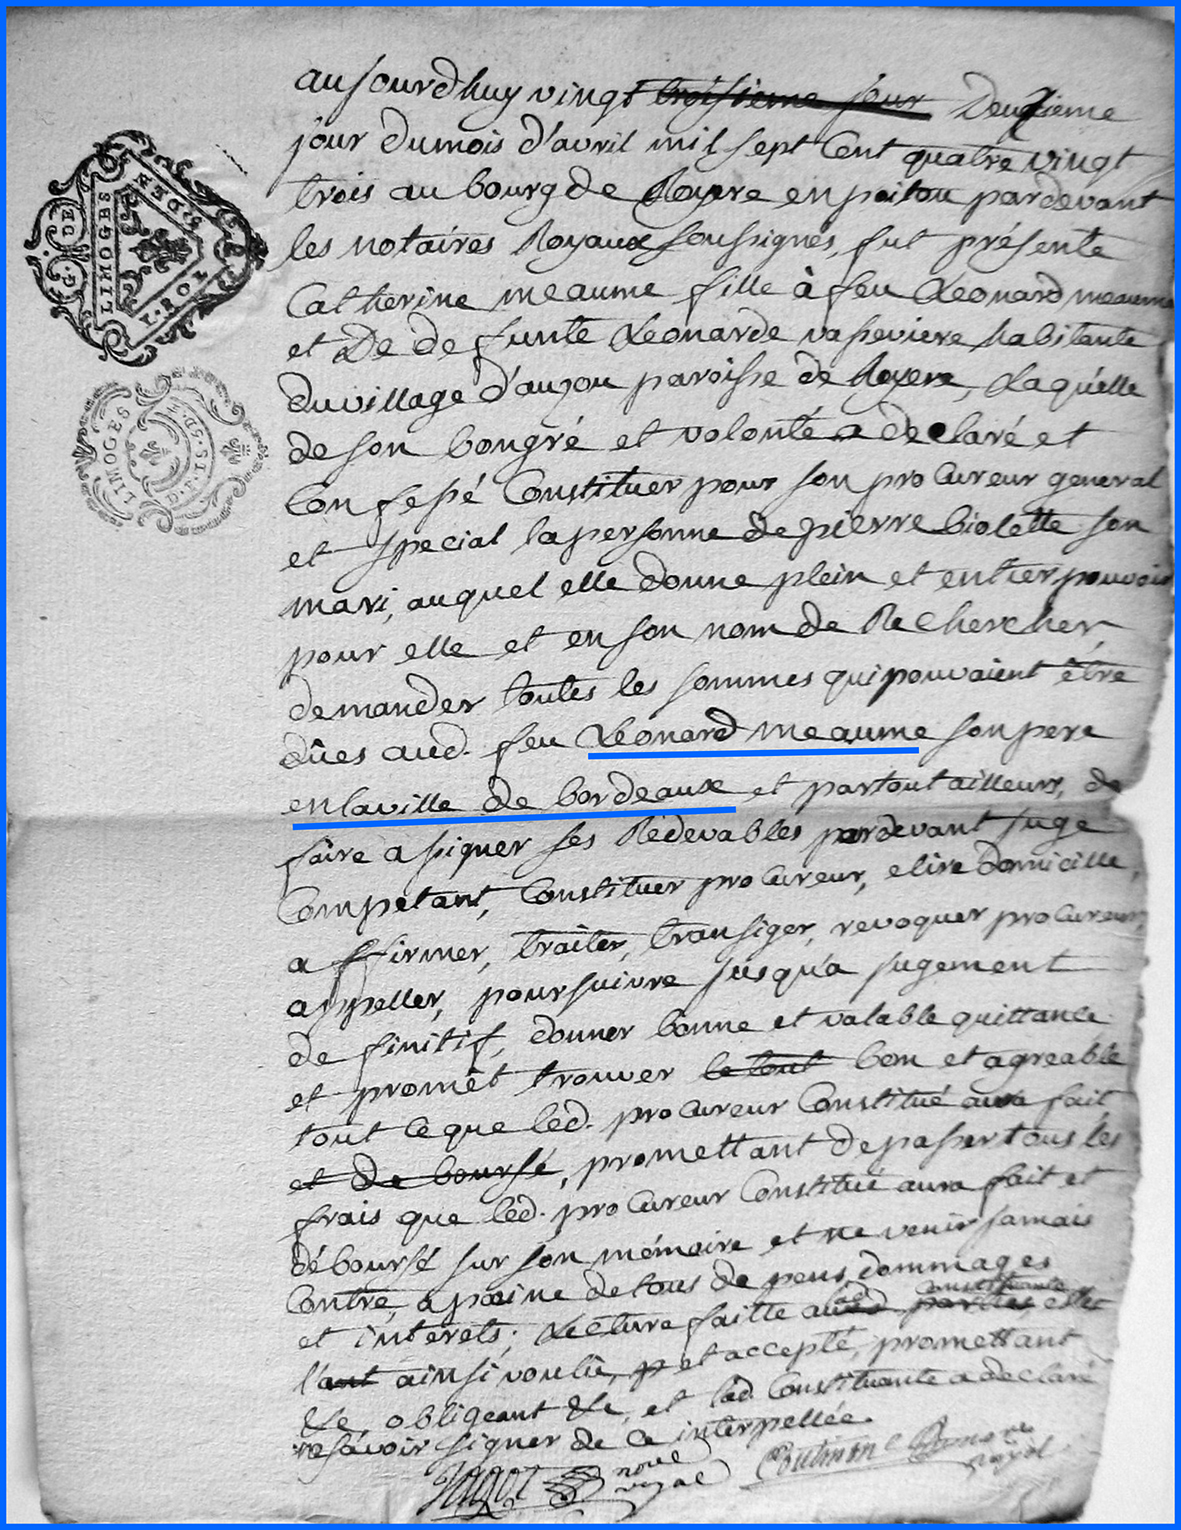 G. DE
LIMOGES
LIMOGES
aujourdhuy vingt troisieme jour Deuxieme
jour dumois d'avril mil sept Cent quatre vingt
trois au bourg de Royere en poitou pardevant
les notaires Royaux soussignés, fut présente
Catherine meaume fille à feu Leonard meaume
et De defunte Leonarde vassiviere habitante
du village d'auzou paroisse de Royere, Laquelle
de son bongré et volonté a declaré et
Confessé Constituer pour son procureur general
et special la personne de pierre biolette son
mari, auquel elle donne plein et entier pouvoir
pour elle et en son nom de Rechercher,
demander toutes les sommes qui pouvaient être
dûes aud. feu Léonard meaume son pere
en laville de bordeaux et partout ailleurs, de
faire assigner ses Rédevables pardevant juge
Compétant, Constituer procureur, elire domicille,
affirmer, traiter, transiger, revoquer procureur,
appeller, poursuivre jusqu'a jugement
definitif, donner bonne et valable quittance
et promêt trouver le tout bon et agreable
tout ce que led. procureur Constitué aura fait
et de boursé, promettant de passer tous les
frais que led. procureur Constitué aura fait et
déboursé sur son mémoire et ne venir jamais
Contre, a peine de tous depens, dommages
et interets; Lecture faitte constituante
l'ant ainsi voulu, et accepté, promettant
&c obligeant &c, et lad. Constituante a declaré
ne sàvoir signer de ce interpellée.
nore royal
royal